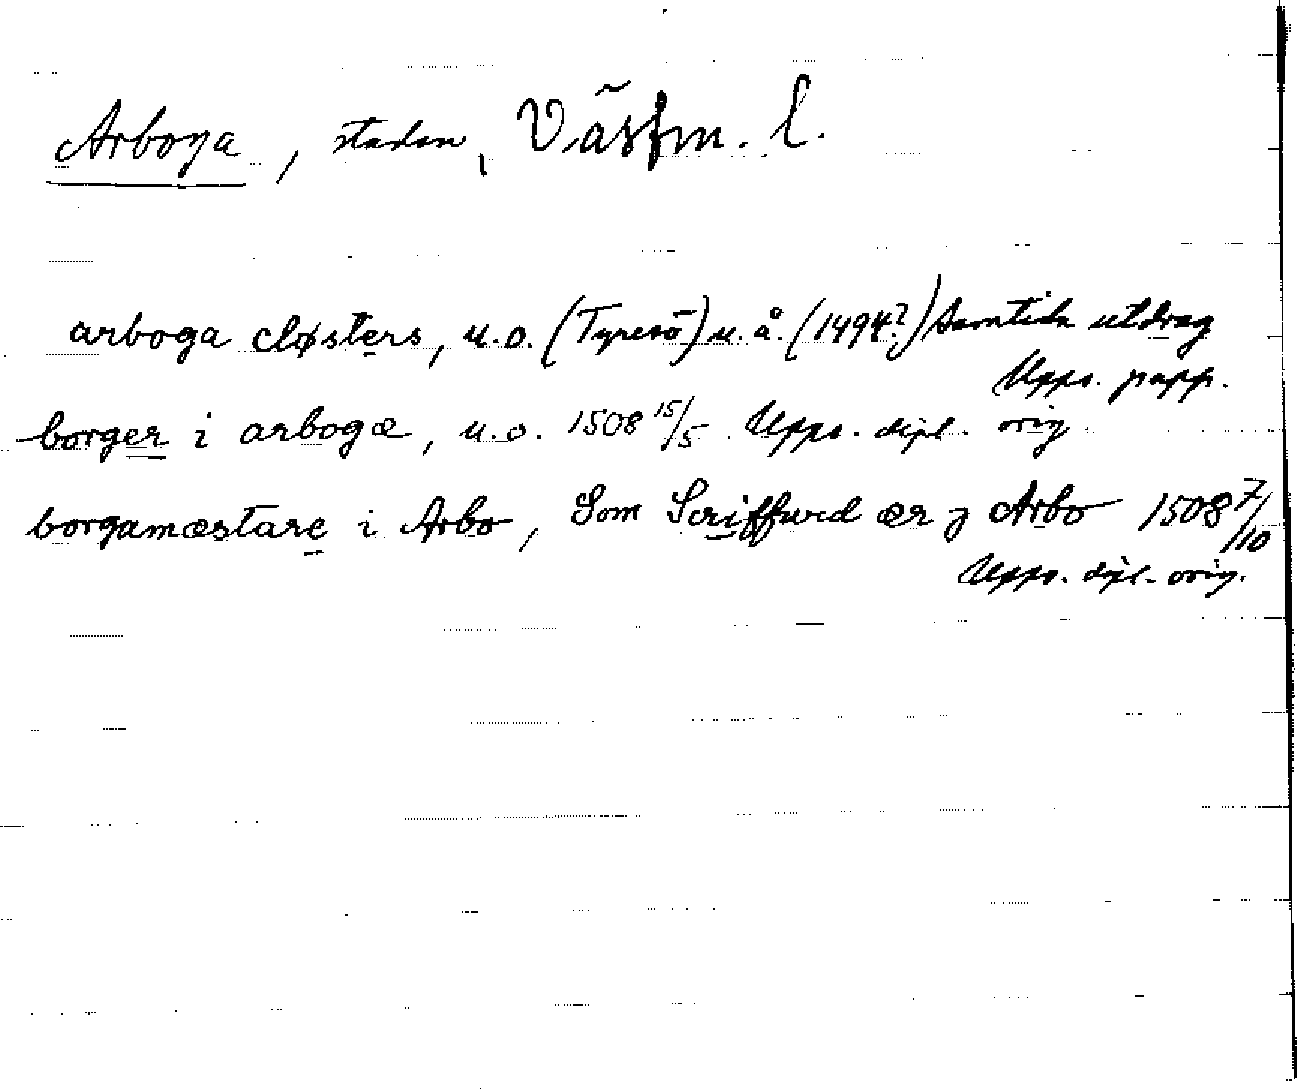 Arboga, staden, Västm. l.
arboga cløsters, u.o. (Tyresö) u. å. (1494?) Samtida utdrag
Upps. papp.
borger i arbogæ, u.o. 1508 15/5 Upps. dipl. orig.
borgamæstare i Arbo, Som Scriffwid ær j Arbo 1508 7/10
Upps. dipl. orig.